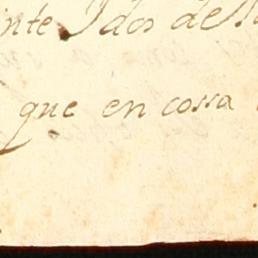 inte Idos de
que en cossa